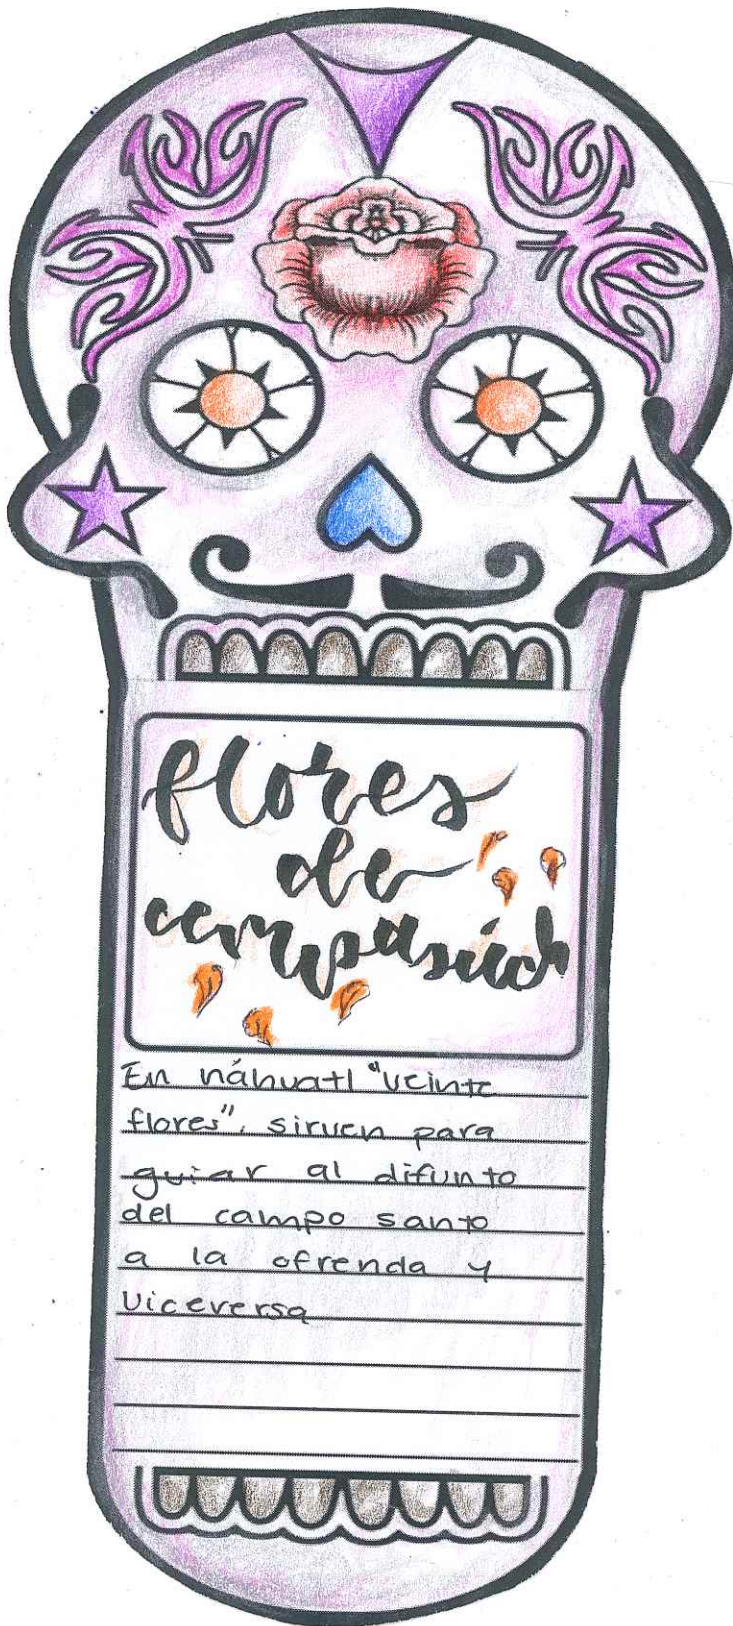 flores
de
cempasúch
En náhuatl "veinte
flores", sirven para
guiar al difunto
del campo santo
a la ofrenda y
viceversa